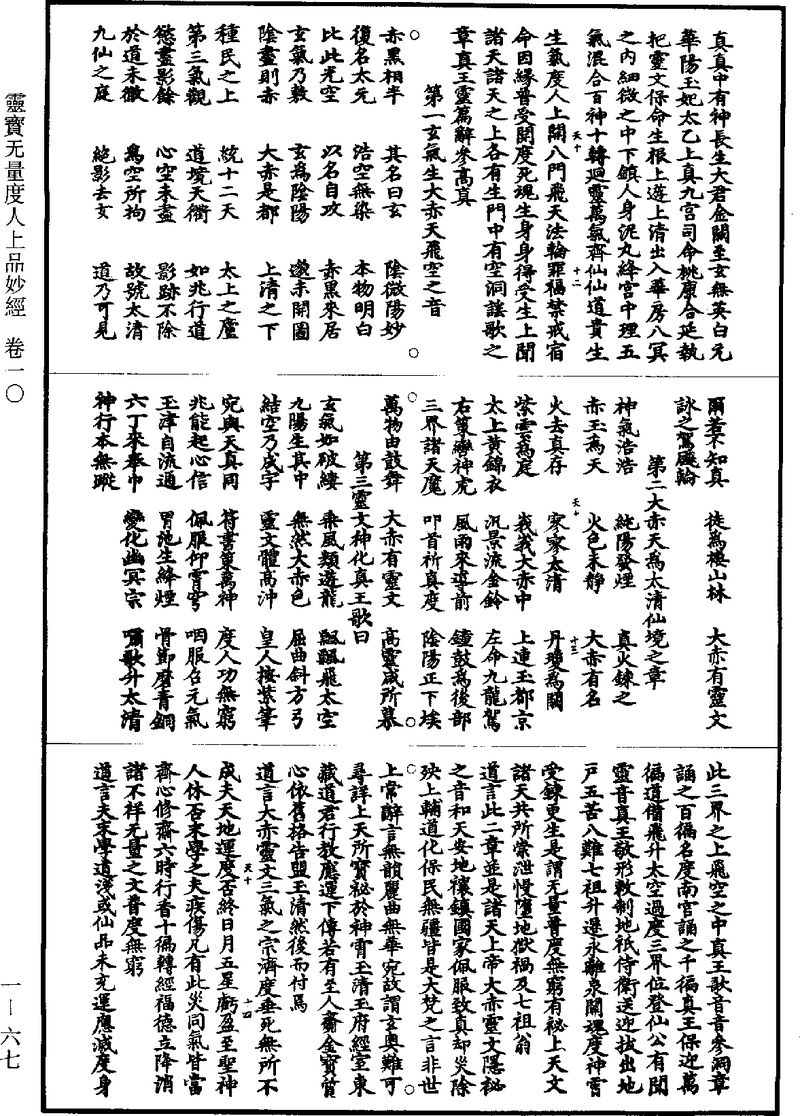 真真中有神長生大君金闕至玄無英白元
華陽玉妃太乙上真九宮司命桃康合延執
把靈文保命生根上遊上清出入華房八冥
之内細微之中下鎮人身泥丸絳宮中理五
氣混合百神十轉迴靈萬氣齊仙仙道貴生
天十 十二
生氣度人上開八門飛天法輪罪福禁戒宿
命因緣普受開度死魂生身身得受生上聞
諸天諸天之上各有生門中有空洞謠歌之
章真王靈篇辭參高真
第一玄氣生大赤天飛空之音
赤黑相半 其名曰玄 陰微陽妙
復名太元 浩空無染 本物明白
比此光空 以名自攻 赤黑來居
玄氣乃敷 玄為陰陽 邈未開圖
陰盡則赤 大赤是都 上清之下
種民之上 統十二天 太上之廬
第三氣觀 道境天衢 如兆行道
慾盡影餘 心空未盡 影跡不除
於道未徹 為空所拘 故號太清
九仙之庭 絕影去女 道乃可見
爾若不知真 徒為棲山林 大赤有靈文
詠之駕飈輪
第二大赤天為太清仙境之章
神氣浩浩 純陽發煙 真火鍊之
赤玉為天 火色未靜 大赤有名
天十 十三
火去真存 寂寂太清 丹瓊為闕
紫雲為庭 峩峩大赤中 上連玉都京
太上黃錦衣 汎景流金鈴 左命九龍駕
右策轡神虎 風雨來導前 鐘鼓為後部
三界諸天魔 叩首祈真度 陰陽正下埃
萬物由鼓舞 大赤有靈文 高靈咸所慕
第三靈文神化真王歌曰
玄氣如破縷 乘風類遊龍 飄飄飛太空
九陽生其中 無然大赤色 屈曲斜方弓
結空乃成字 靈文體高沖 皇人按紫筆
宛與天真同 符書策萬神 度人功無窮
兆能起心信 佩服仰穹 咽服召元氣
玉津自流通 胃池生絳煙 骨節磨青銅
六丁來奉巾 變化幽冥宗 嘯歌升太清
神行本無蹤
此三界之上飛空之中真王歌音音參洞章
誦之百徧名度南宮誦之千徧真王保迎萬
徧道備飛升太空過度三界位登仙公有聞
靈音真王敬形敕制地祇侍衛送迎拔出地
戶五苦八難七祖升遷永離泉關魂度神霄
受鍊更生是謂无量普度無窮有祕上天文
諸天共所崇泄慢墮地獄禍及七祖翁
道言此二章並是諸天上帝大赤靈文隱祕
之音和天安地禳鎮國家佩服致真却災除
殃上輔道化保民無疆皆是大梵之言非世
上常辭言無韻麗曲無華宛故謂玄奧難可
尋詳上天所寶祕於神霄玉清玉府經室東
藏道君行教應運下傳若有至人齎金寶質
心依舊格告盟玉清然後而付焉
道言大赤靈文三氣之宗濟度垂死無所不
天十 十四
成夫天地運度否終日月五星虧盈至聖神
人休否末學之夫疾傷凡有此災同氣皆當
齊心修齋六時行香十徧轉經福德立降消
諸不祥无量之文普度無窮
道言夫末學道淺或仙品未充運應滅度身
靈寶无量度人上品妙經 卷一〇
一—六七